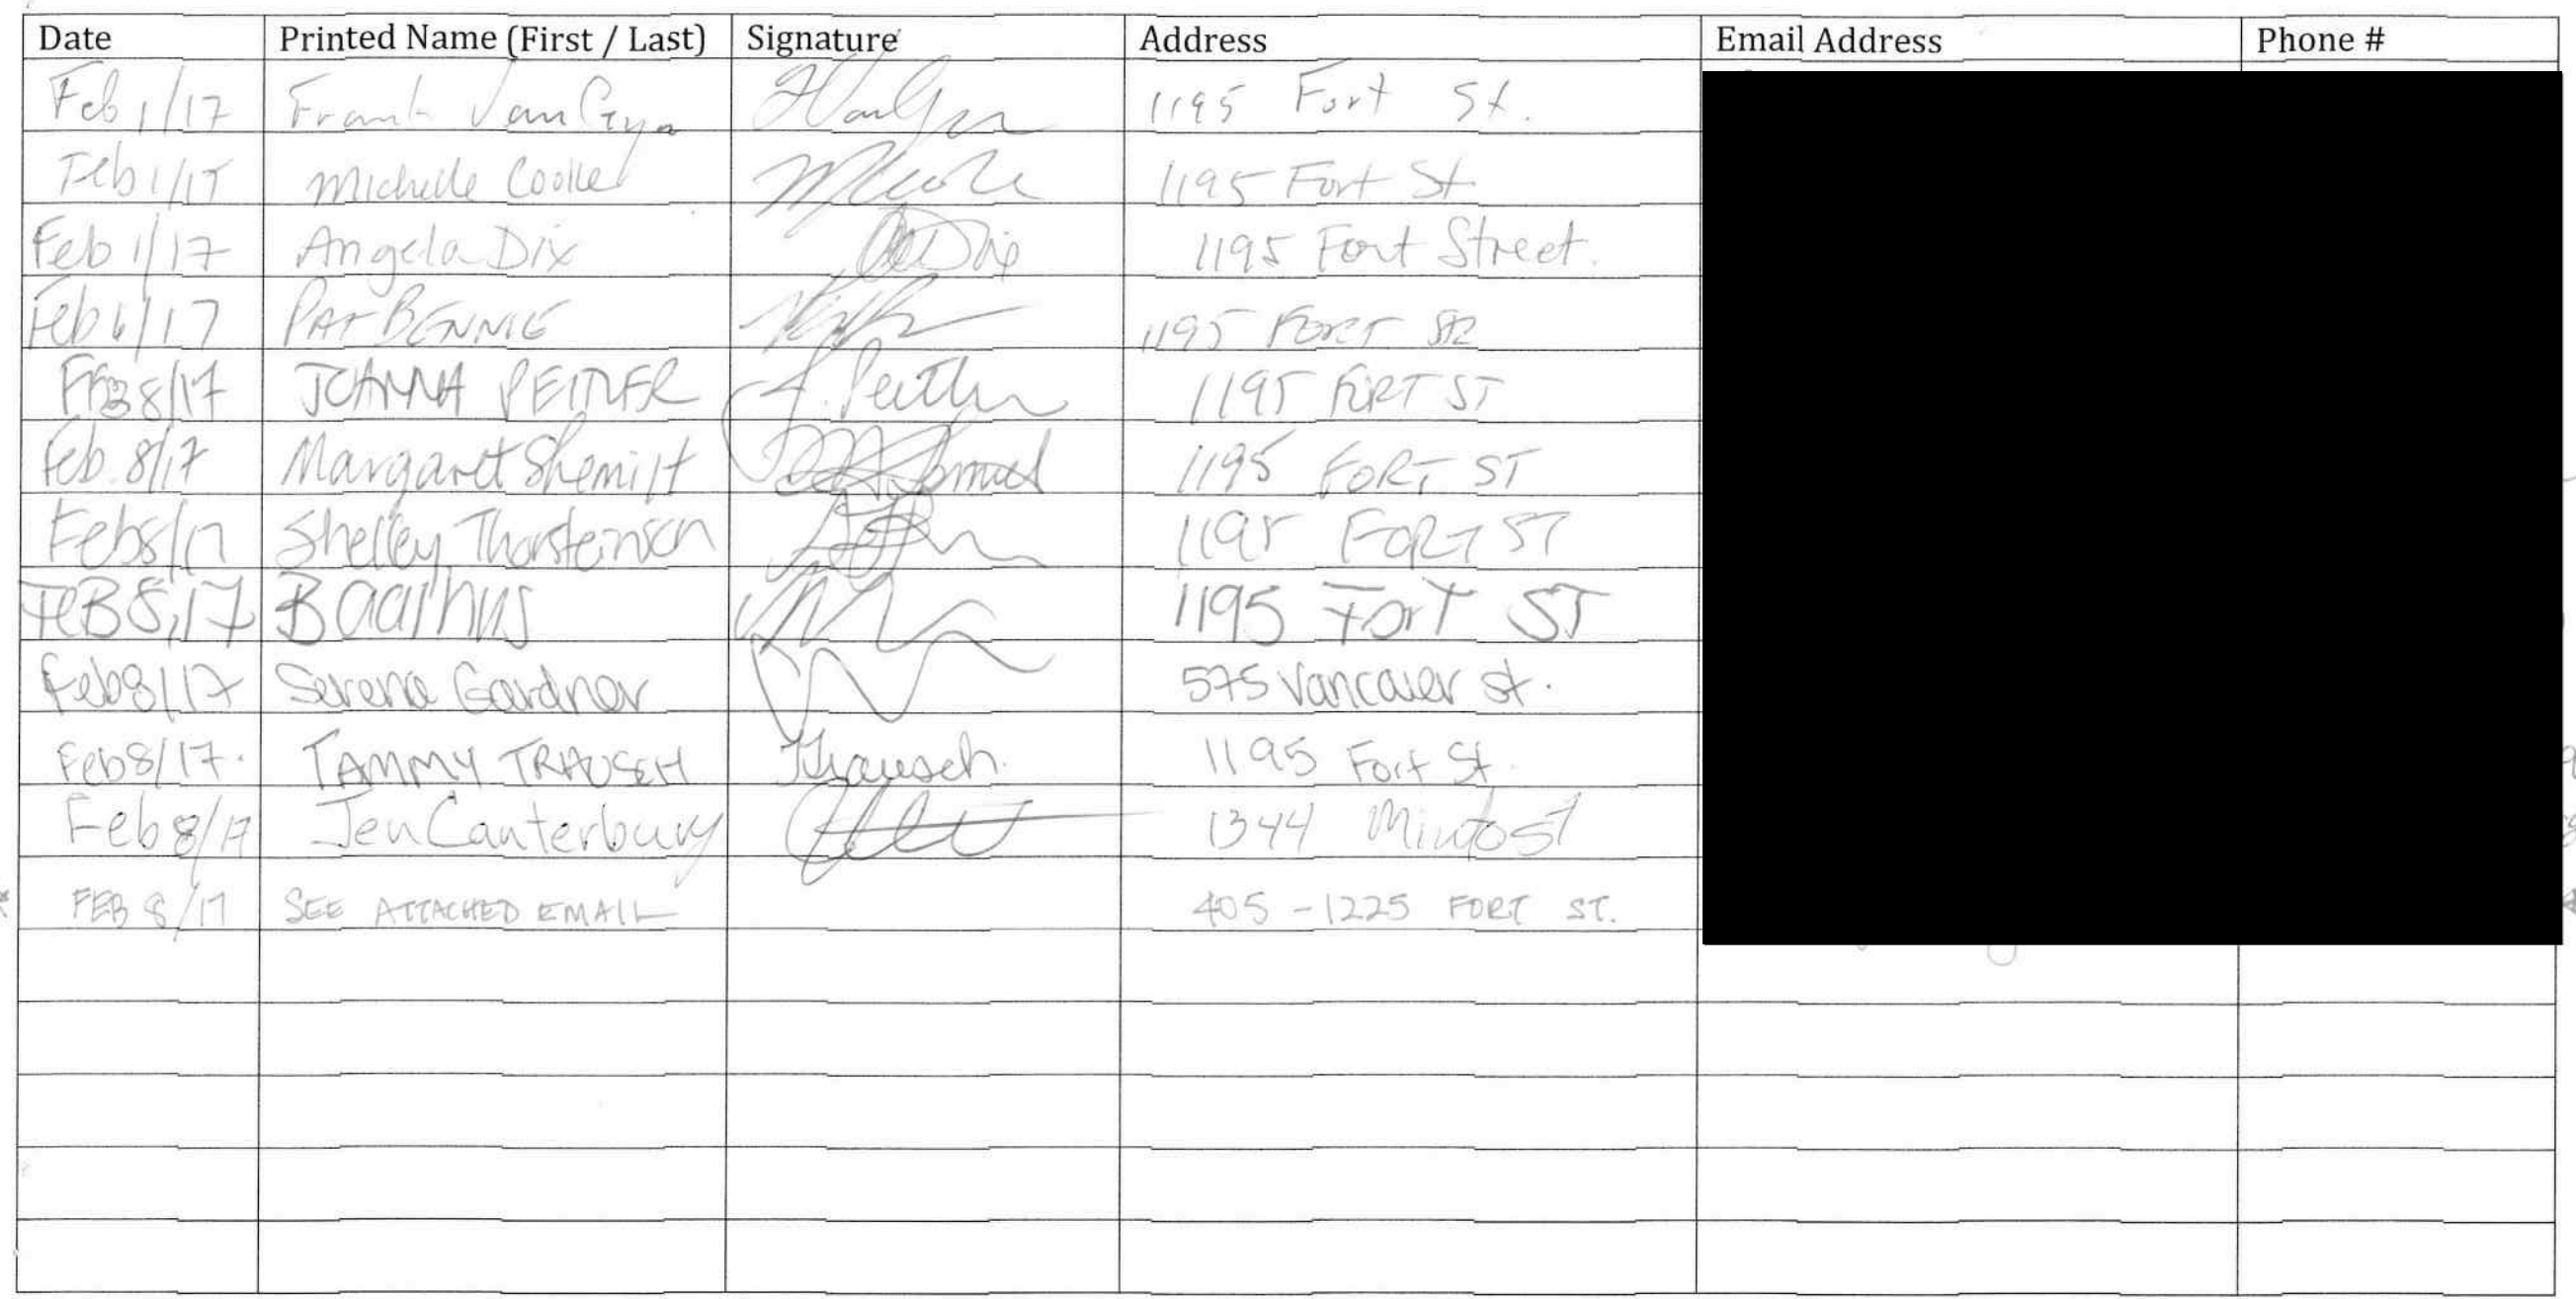 Date Printed Name (First / Last) Signature Address Email Address Phone #
Feb 1/17 Frank Van Gyn 1195 Fort St.
Feb 1/17 Michelle Cooke 1195 Fort St
Feb 1/17 Angela Dix A Dix 1195 Fort Street.
Feb 6/17 PAT BENNIE 1195 FORT STR
FEB 8/17 JOANNA PEITLER J. Peitler 1195 FORT ST
Feb. 8/17 Margaret Shemilt 1195 FORT ST
Feb 8/17 Shelley Thorsteinson 1195 FORT ST
FeB 8,17 B aarhus 1195 Fort ST
Feb 8/17 Serena Gardner 575 Vancouver st.
Feb 8/17. TAMMY TRAUSCH TTrausch. 1195 Fort St.
Feb 8/17 Jen Canterbury 1344 Minto St
FEB 8/17 SEE ATTACHED EMAIL 405 - 1225 FORT ST.